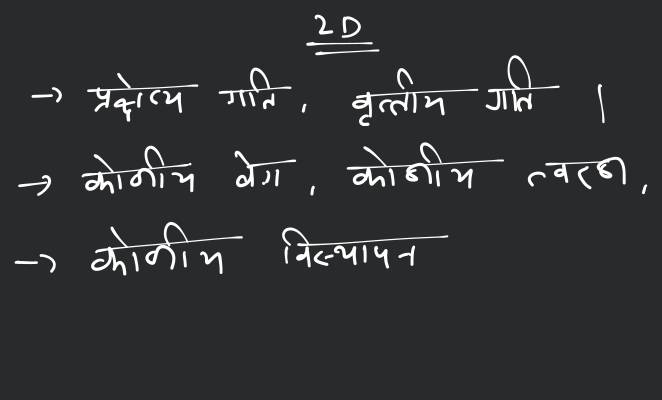 2D
→ प्रक्षेप्य गति, वृत्तीय गति |
→ कोणीय वेग, कोणीय त्वरण,
→ कोणीय विस्थापन